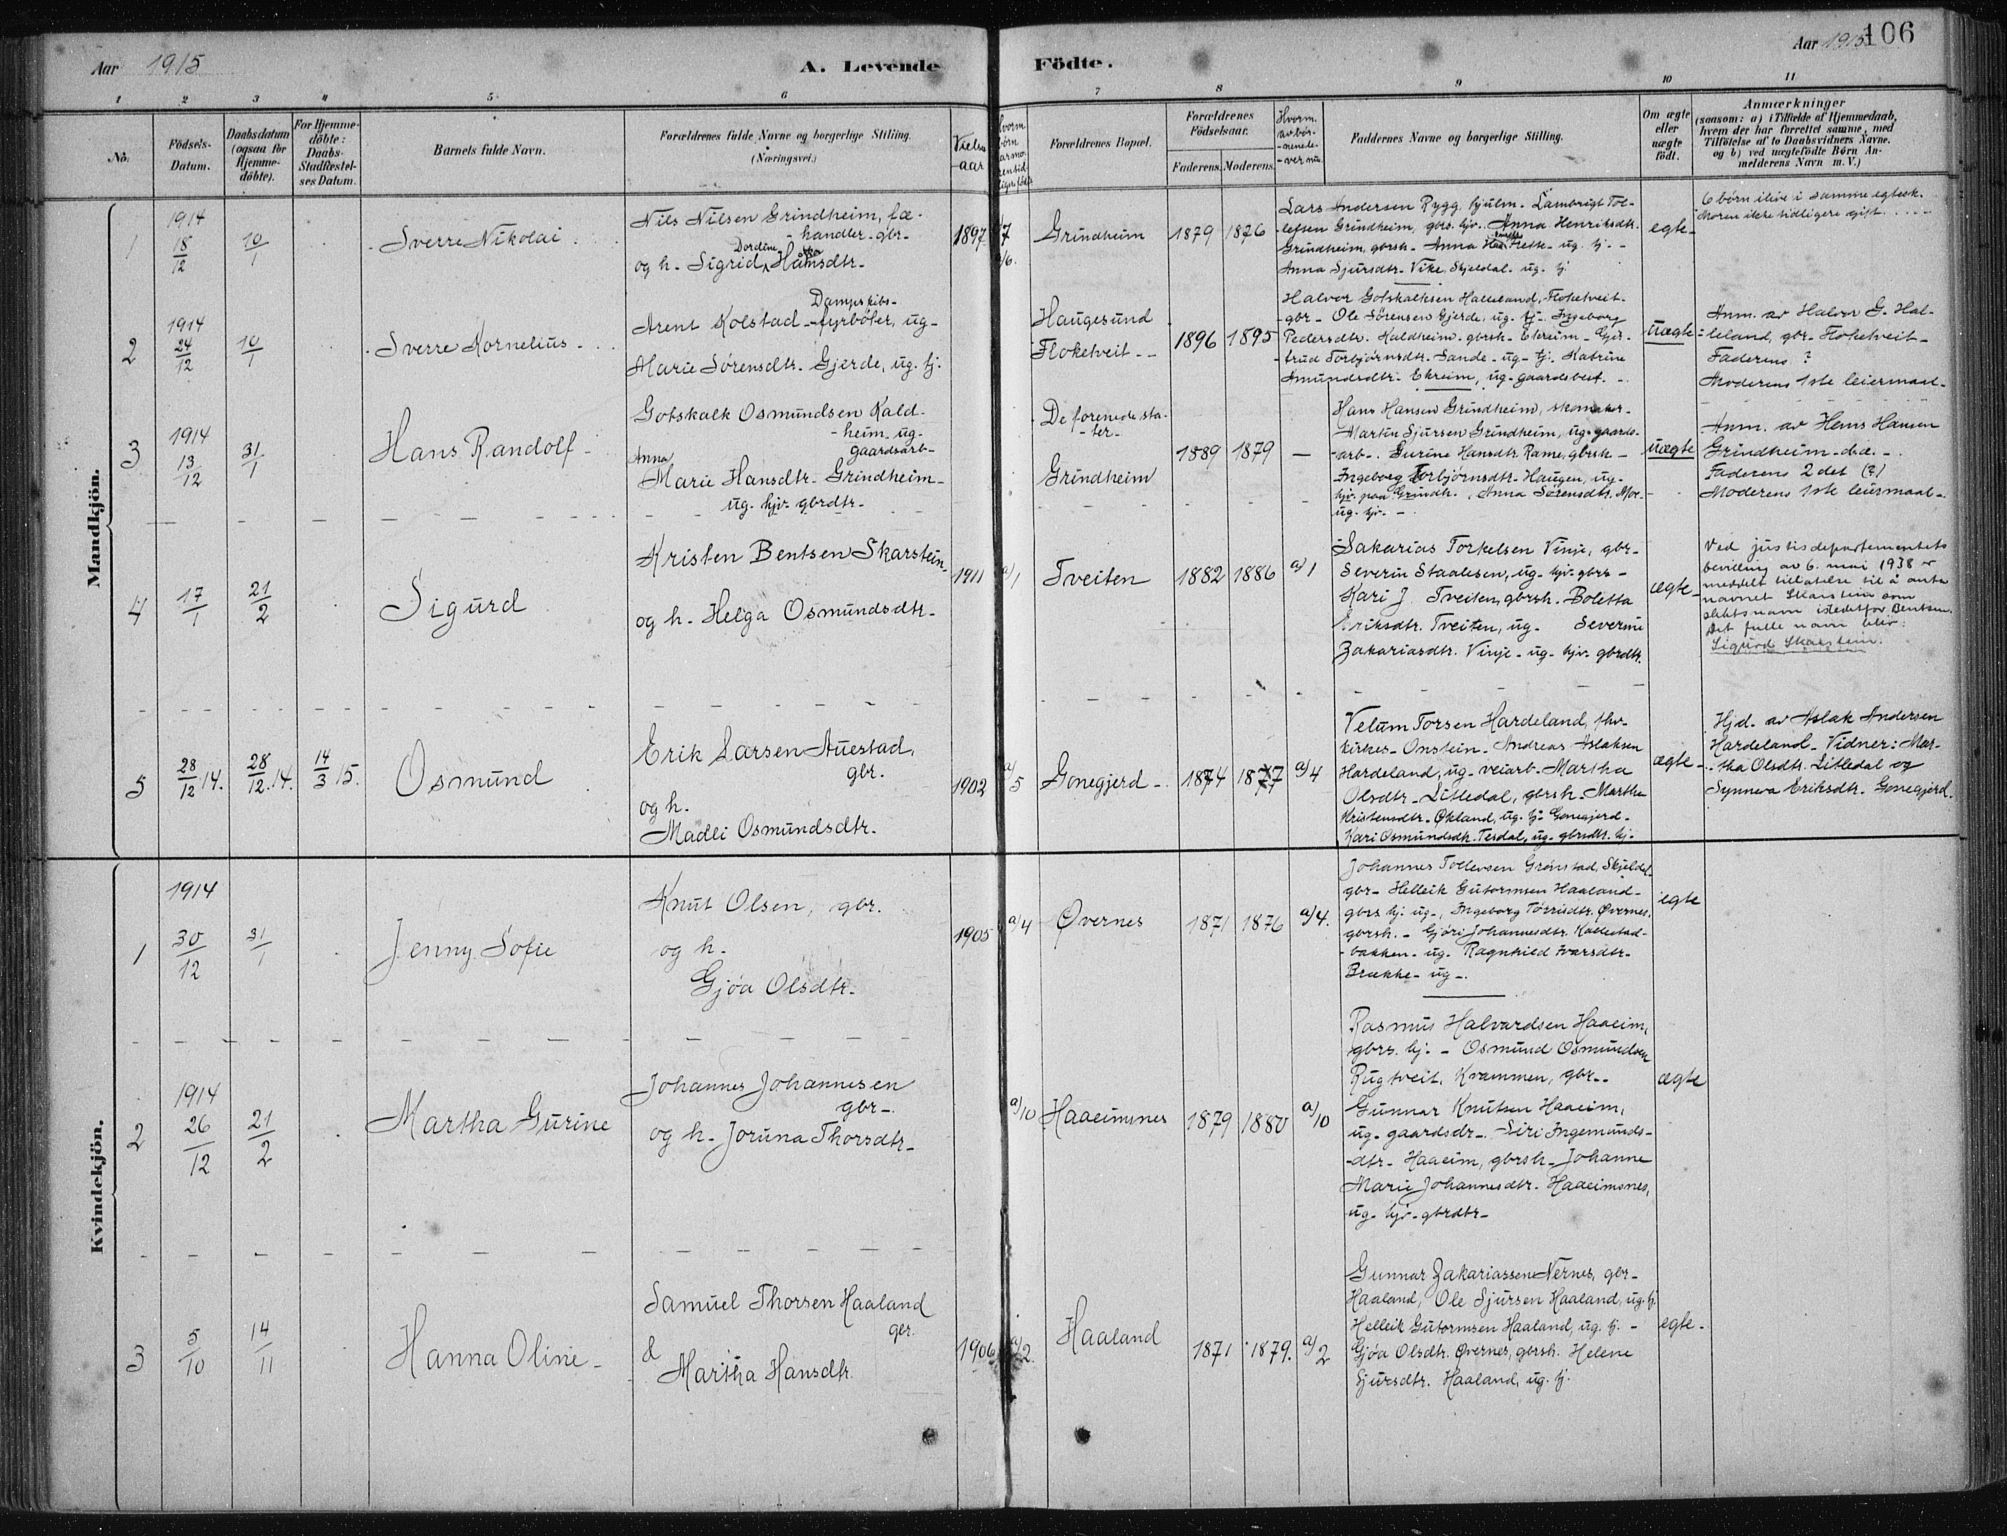 Aar 1915
A. Levende
Födte.
Aar 1915
106
1 2 3 4 5 6 7 8 9 10 11
No.
Födsels-
Datum.
Daabsdatum
(ogsaa for
Hjemme-
döbte).
For Hjemme-
döbte:
Daabs-
Stadfæstel-
ses Datum.
Barnets fulde Navn.
Forældrenes fulde Navne og borgerlige Stilling.
(Næringsvei.)
Vielses-
aar
Forældrenes Bopæl.
Forældrenes
Födselsaar.
Faderens. Moderens.
Faddernes Navne og borgerlige Stilling.
Om ægte
eller
uægte
födt.
Anmærkninger
(saasom: a) i Tilfælde af Hjemmedaab,
hvem der har forrettet samme, med
Tilföielse af to Daabsvidners Navne.
og b) ved uægtefödte Börn An-
melderens Navn m. V.)
Mandkjön.
1
1914
18/12
10/1
Sverre Nikolai
Nils Nilsen Grindheim, læ-
handler- gbr-
Dordine
og h. Sigrid Hansdtr-
1897
7
Grindheim
1879 1876
Lars Andersen Rygg hjulm. Lambrigt Tol-
lefsen Grindheim, gbrs. hjv. Anna Henriksdtr.
Grindheim, gbrsh- Anna Hette- ug. hj. -
Anna Sjursdtr. Vike, Skjeldal- ug. hj
egte-
6 børn ilive i samme egtesk.
Moren ikke tidligere gift
2
1914
24/12
10/1
Sverre Kornelius-
Dampskibs-
Arent Kolstad- fyrbøter, ug-
Marie Sørensdtr- Gjerde, ug. hj.
Haugesund
Floketveit --
1896 1895
Halvor Gotskalksen Halleland, Floketveit-
gbr- Ole Sørensen Gjerde, ug. hj- Ingeborg
Pedersdtr. Kaldheim- gbrsh- Ekreim- Gjer-
trud Torbjørnsdtr- Sande- ug- hj. Katrine
Amundsdtr- Ekreim, ug- gaardsbest. -
uægte
Anm. av Halvor G. Hal-
leland, gbr. Floketveit-
Faderens ?
Moderens 1ste leiermaal-
3
1914
13/12
31/1
Hans Randolf -
Gotskalk Osmundsen Kald-
heim, ug-
gaardsarb-
Anna
Marie Hansdtr- Grindheim-
ug. hjv- gbrdtr-
De forenede sta-
ter-
Grindheim
1889 1879 —
Hans Hansen Grindheim, skomaker-
Martin Sjursen Grindheim, ug- gaards-
arb-. Gurine Hansdtr Rame, gbrsh-
Ingeborg Torbjørnsdtr- Haugen, ug-
hjv. paa Grindh., Anna Sørensdtr. Moe-
ug. hjv-
uægte
Anm. av Hans Hansen
Grindheim- d.d. -
Faderens 2det (?)
Moderens 1ste leiermaal-
4
17/1
21/2
Sigurd
Kristen Bentsen Skarstein,
og h- Helga Osmundsdtr-
1911
a/1
Tveiten
1882 1886 a/1
Sakarias Torkelsen Vinje, gbr-
Severin Staalesen, ug- hjv- gbrs-
Kari J. Tveiten, gbrsh. Boletta
Eriksdtr. Tveiten, ug- Severine
Zakariasdtr. Vinje- ug- hjv- gbrdtr.
ægte-
Ved justisdepartementets
bevilling av 6. mai 1938 er
meddelt tillatelse til å anta
navnet Skarstein som
slektsnavn istedetfor Bentsen.
Det fulle navn blir:
Sigurd Skarstein.
5
28/12 14.
28/12 14.
14/3 15.
Osmund
Erik Larsen Auestad,
gbr.
og h.
Madli Osmundsdtr.
1902
a/5
Gonegjerd-
1874 1877 a/4
Velum Torsen Hardeland,
kirkes- Onstein- Andreas Aslaksen
Hardeland, ug- veiarb- Martha
Olsdtr- Litledal, gbrsh- Martha
Kristensdtr- Økland, ug. hj- Gonegjerd-
Kari Osmundsdtr. Tesdal, ug- gbrsdtr. hj-
ægte-
Hjd. av Aslak Andersen
Hardeland- Vidner: Mar-
tha Olsdtr. Litledal og
Synneva Eriksdtr. Gonegjerd.
Kvindekjön.
1
1914
30/12
31/1
Jenny Sofie
Knut Olsen, gbr.
og h-
Gjøa Olsdtr-
1905
a/4
Øvernes
1871 1876 a/4.
Johannes Tollevsen Grønstad, Skjeldal-
gbr- Helleik Gutormsen Haaland-
gbrs hj- ug-, Ingeborg Tørrisdtr. Øvernes,
gbrsh. - Gjøri Johannesdtr. Kallestad-
bakken- ug- Ragnhild Ivarsdtr-
Brække- ug-.
egte
2
1914
26/12
21/2
Martha Gurine
Johannes Johannesen
gbr-.
og h- Joruna Thorsdtr-
a/10
Haaeimsnes
1879 1880 a/10
Rasmus Halvardsen Haaeim,
gbrs. hj. - Osmund Osmundsen
Rugtveit, Kvammen, gbr-.
Gunnar Knutsen Haaeim,
ug- gaardsdr-. Siri Ingemunds-
-dtr- Haaeim, gbrsh- Johanne
Marie Johannesdtr. Haaeimsnes,
ug- hjv- gbrdtr-
ægte
3
5/10
14/11
Hanna Oline-
Samuel Thorsen Haaland
gbr.
&
Martha Hansdtr.
1906
a/2
Haaland
1871 1879. a/2
Gunnar Zakariassen Nernes, gbr-
Haaland, Ole Sjursen Haaland, ug. hj.
Helleik Gutormsen Haaland, ug. hj. -
Gjøa Olsdtr. Øvernes, gbrsh. Helene
Sjursdtr. Haaland, ug. hj.
egte-